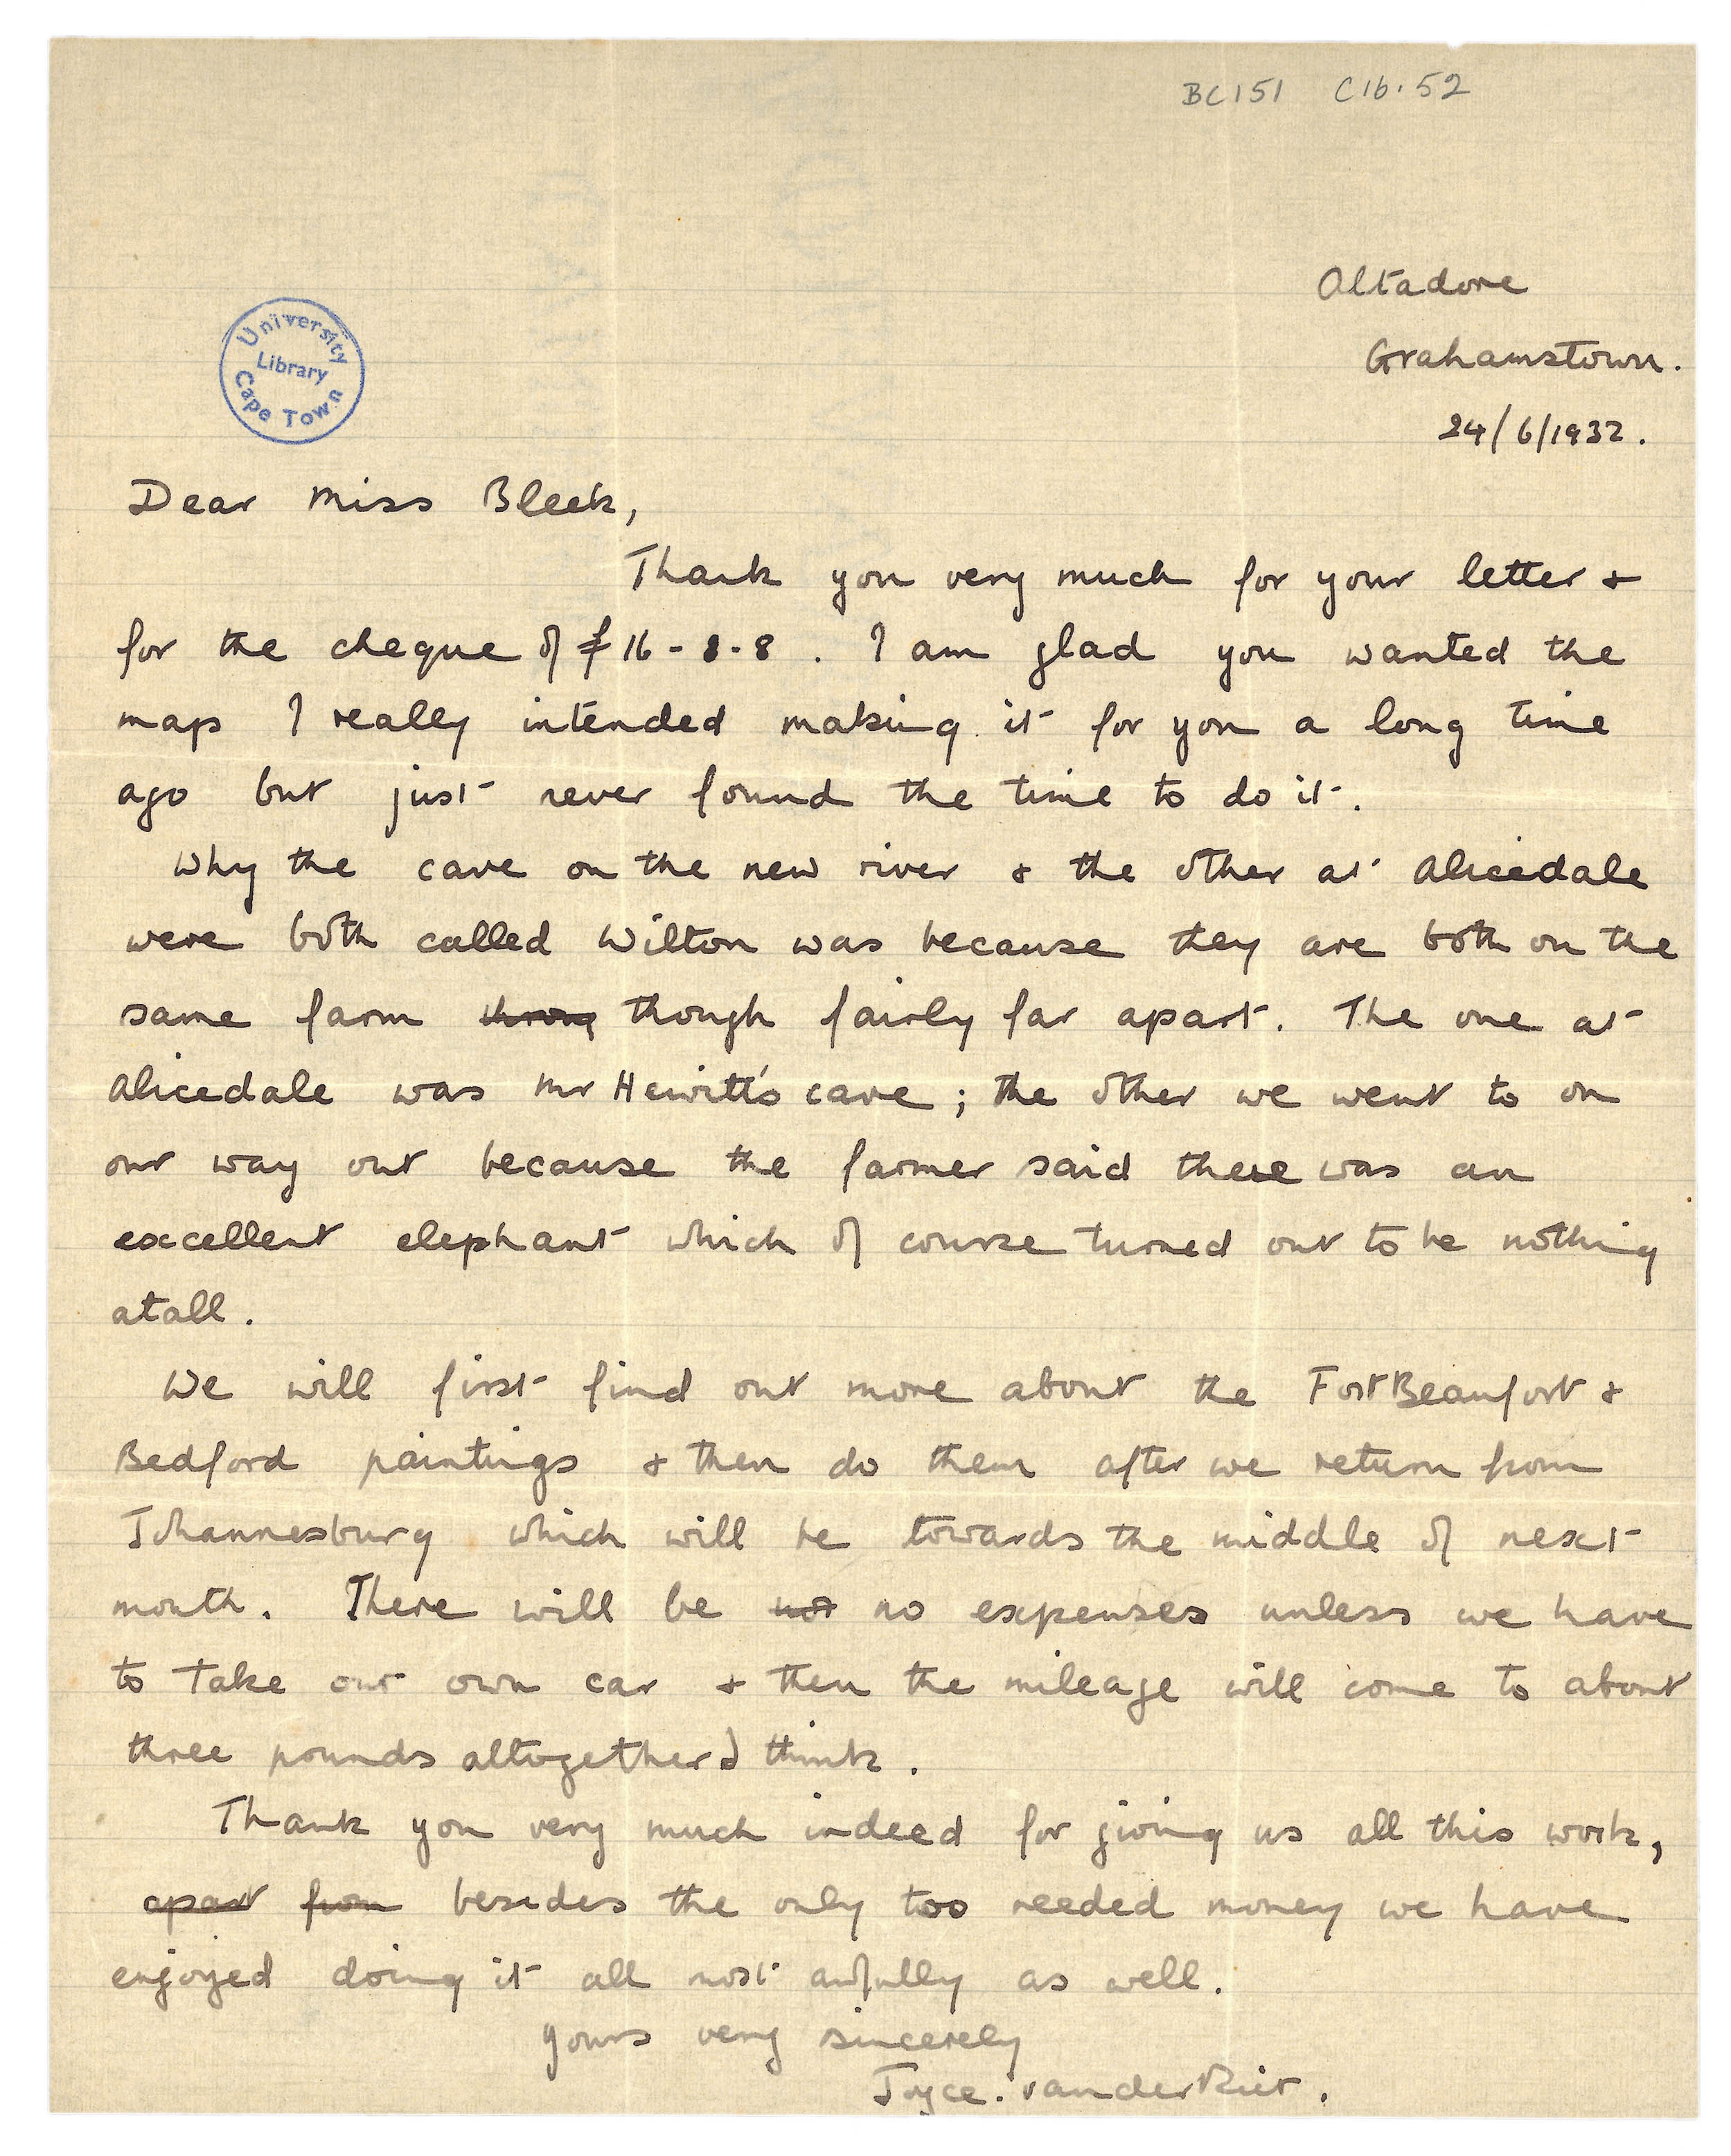 BC151 C16.52
Altadore
Grahamstown.
24/6/1932.
University
Library
Cape Town
Dear Miss Bleek,
Thank you very much for your letter &
for the cheque of £16-8-8. I am glad you wanted the
map I really intended making it for you a long time
ago but just never found the time to do it.
Why the cave on the new river & the other at Alicedale
were both called Wilton was because they are both on the
same farm though fairly far apart. The one at
Alicedale was Mr Hewitt's cave; the other we went to on
our way out because the farmer said there was an
excellent elephant which of course turned out to be nothing
atall.
We will first find out more about the Fort Beaufort &
Bedford paintings & then do them after we return from
Johannesburg which will be towards the middle of next
month. There will be not no expenses unless we have
to take our own car & then the mileage will come to about
three pounds altogether I think.
Thank you very much indeed for giving us all this work,
apart from besides the only too needed money we have
enjoyed doing it all most awfully as well.
yours very sincerely
Joyce. van der Riet.